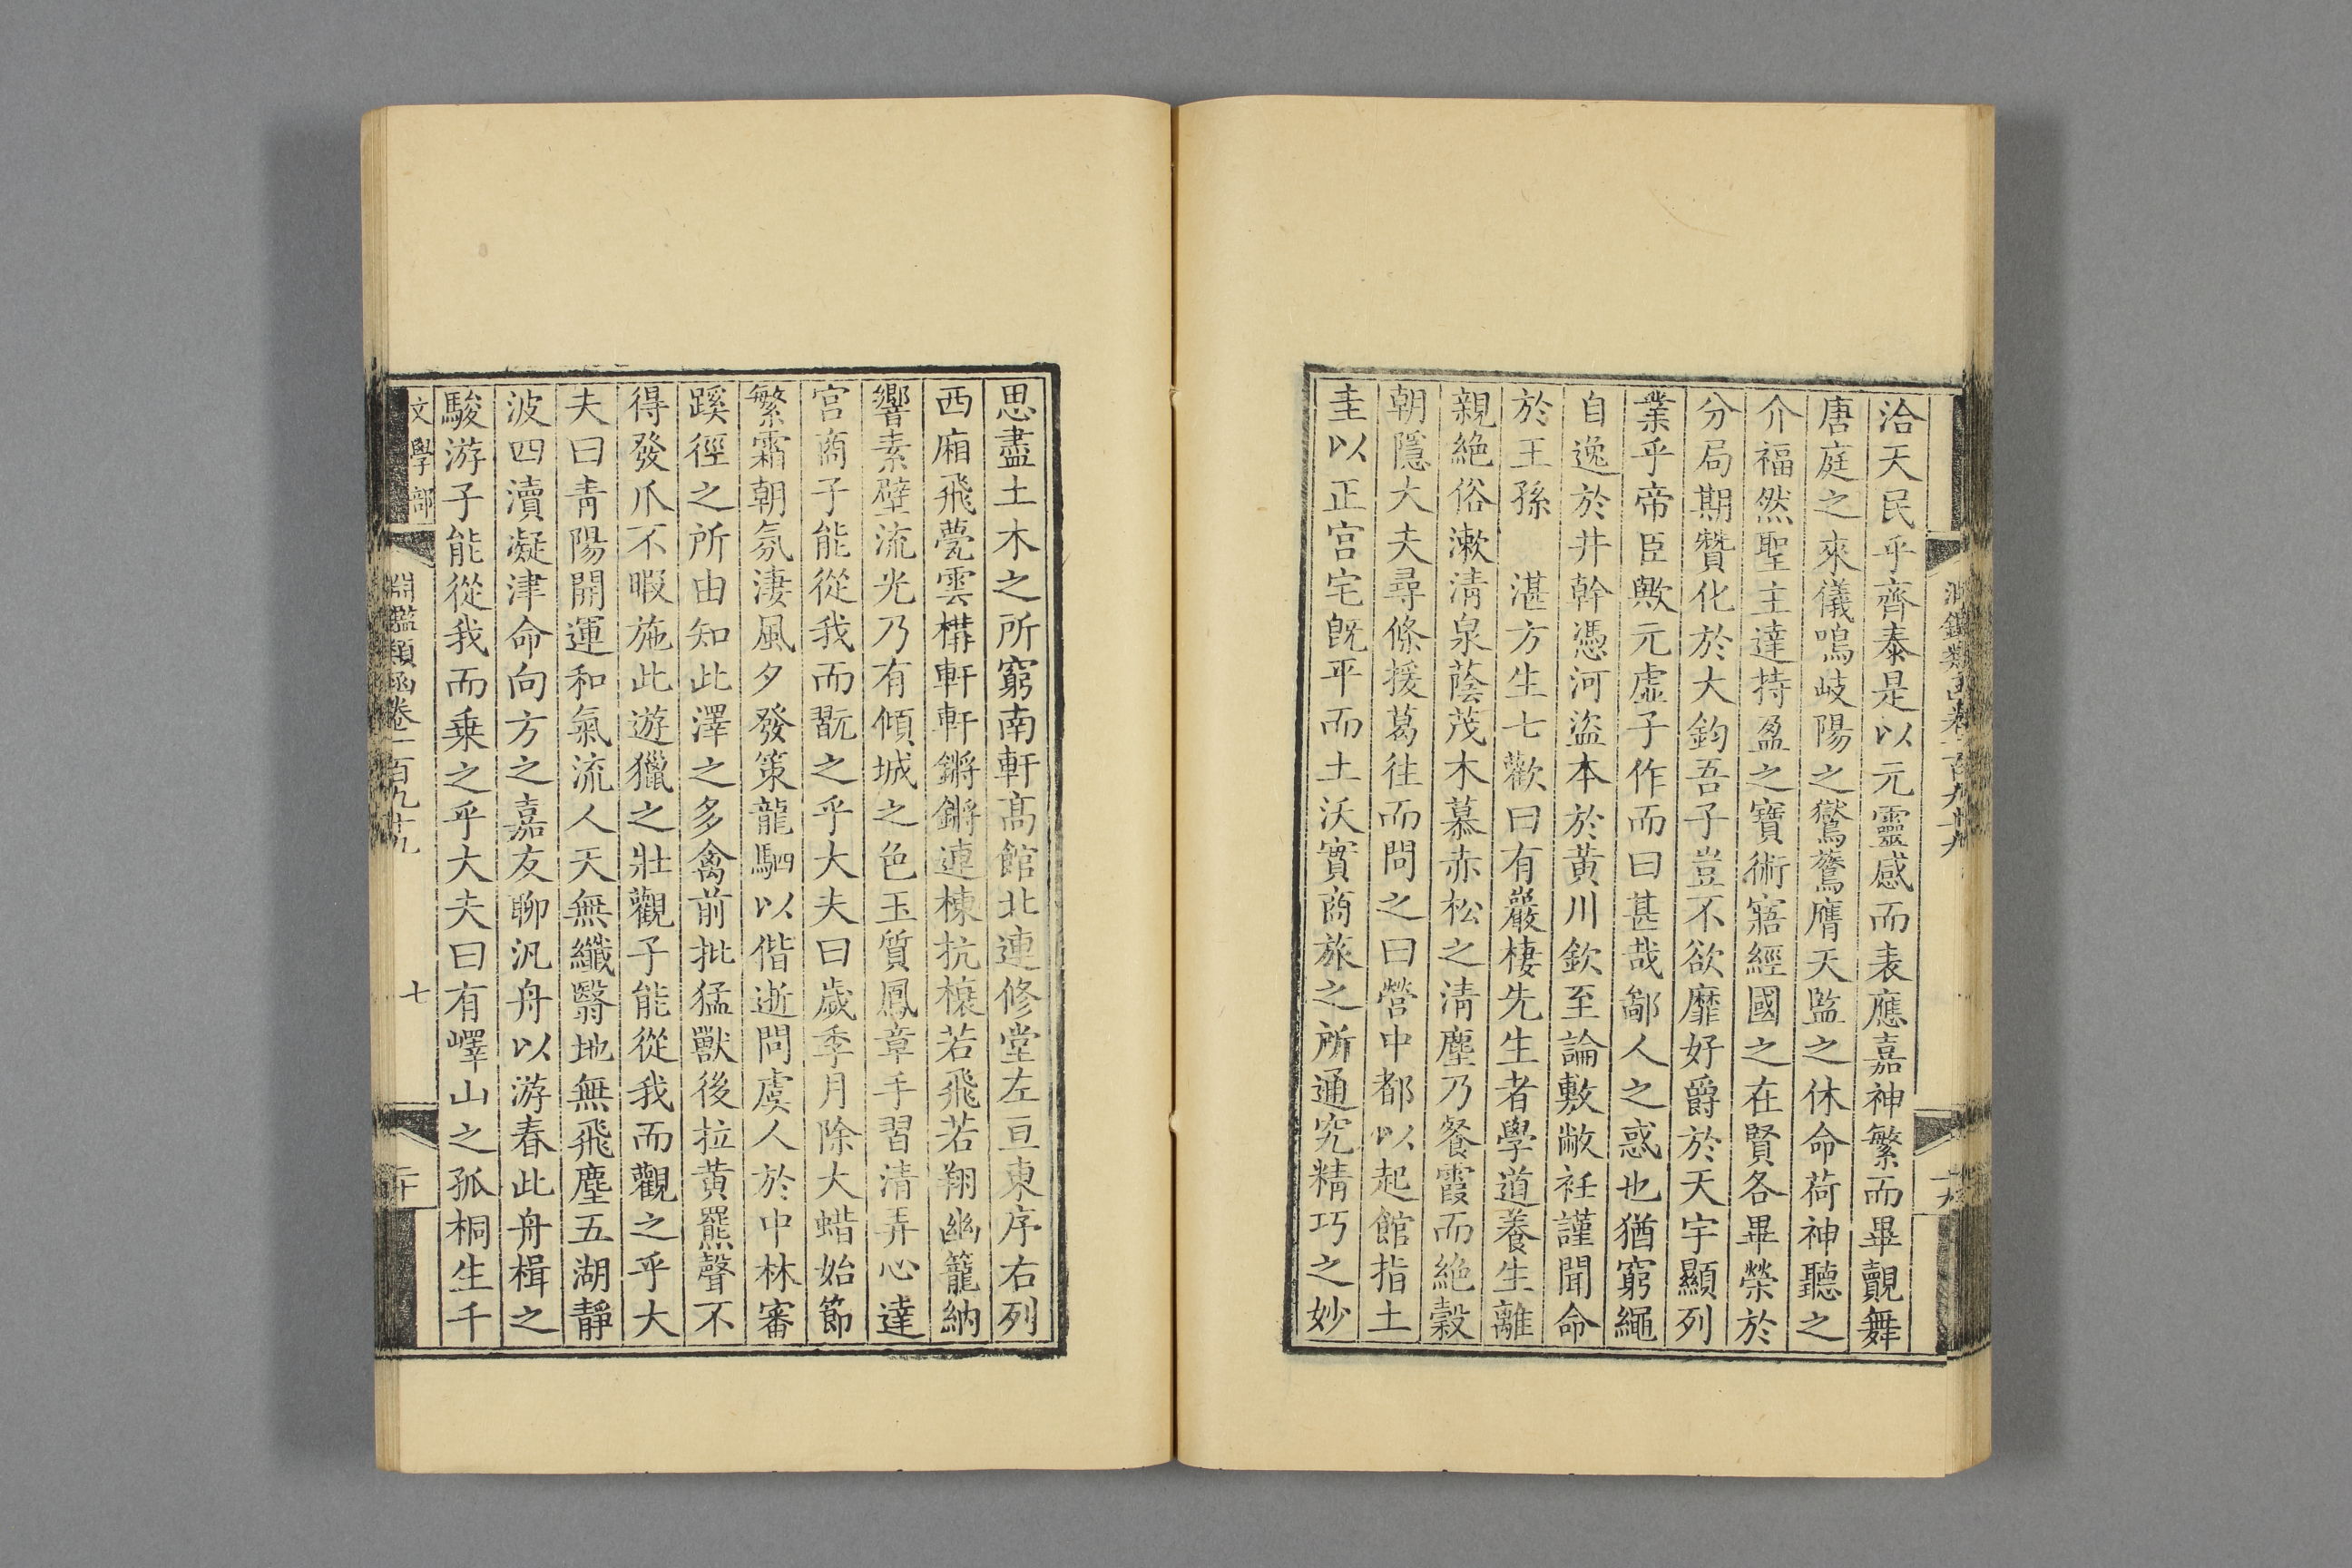 洽天民乎齊泰是以元靈感而表應嘉神繁而畢覿舞
唐庭之來儀鳴岐陽之鸑鷟膺天監之休命荷神聽之
介福然聖主達持盈之寶術寤經國之在賢各畢榮於
分局期贊化於大鈞吾子豈不欲靡好爵於天宇顯列
業乎帝臣歟元虛子作而曰甚哉鄙人之惑也猶窮繩
自逸於井幹憑河盜本於黃川欽至論敷敝衽謹聞命
於王孫　湛方生七歡曰有巖棲先生者學道養生離
親絶俗漱清泉蔭茂木慕赤松之清塵乃餐霞而絶穀
朝隱大夫尋條援葛往而問之曰營中都以起館指土
圭以正宫宅旣平而土沃實商旅之所通究精巧之妙
思盡土木之所窮南軒高館北連修堂左亘東序右列
西廂飛甍雲構軒軒鏘鏘連棟抗榱若飛若翔幽籠納
響素壁流光乃有傾城之色玉質鳳章手習清弄心達
宫商子能從我而翫之乎大夫曰歲季月除大蜡始節
繁霜朝氛淒風夕發策龍駟以偕逝問虞人於中林審
蹊徑之所由知此澤之多禽前批猛獸後拉黃羆聲不
得發爪不暇施此遊獵之壯觀子能從我而觀之乎大
夫曰靑陽開運和氣流人天無纖翳地無飛塵五湖靜
波四瀆凝津命向方之嘉友聊汎舟以游春此舟楫之
駿游子能從我而乗之乎大夫曰有嶧山之孤桐生千
文學部　淵鑑類函卷一百九十九　七